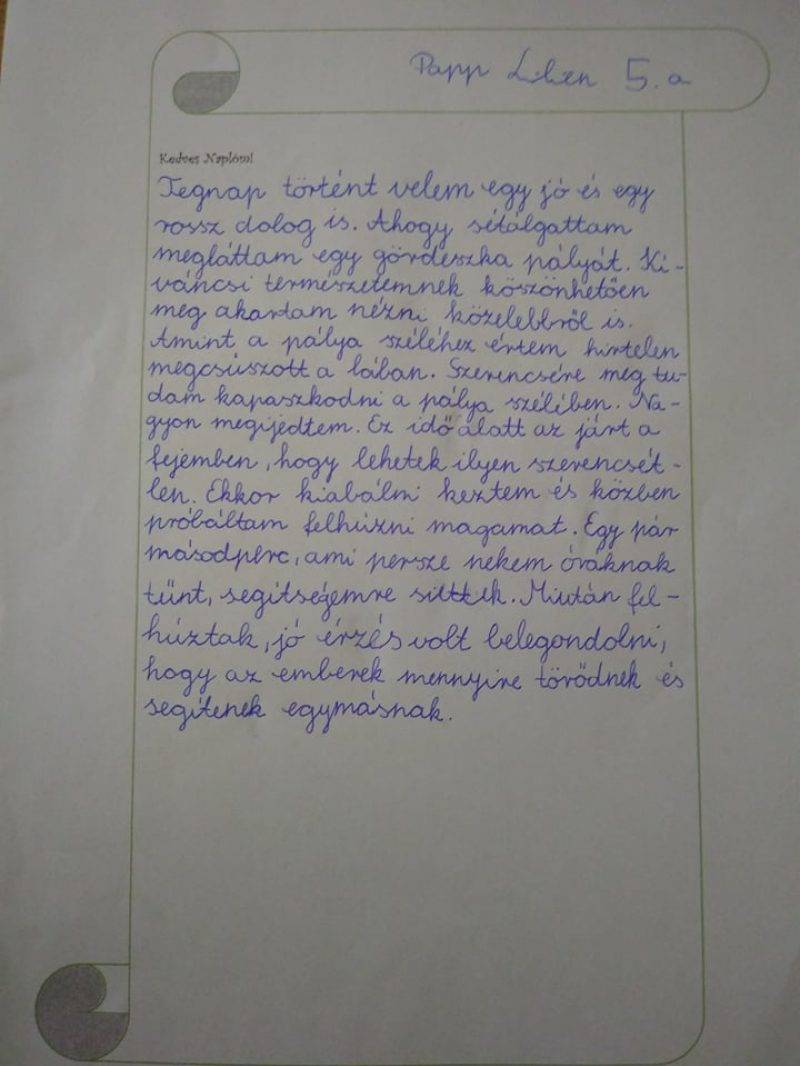 Papp Lilien 5. a
Kedves Naplóm!
Tegnap történt velem egy jó és egy
rossz dolog is. Ahogy sétálgattam
megláttam egy gördeszka pályát. Ki-
váncsi természetemnek köszönhetően
meg akartam nézni közelebbről is.
Amint a pálya széléhez értem hirtelen
megcsúszott a lában. Szerencsére meg tu-
dam kapaszkodni a pálya szélében. Na-
gyon megijedtem. Ez idő alatt az járt a
fejemben, hogy lehetek ilyen szerencsét-
len. Ekkor kiabálni keztem és közben
próbáltam felhúzni magamat. Egy pár
másodperc, ami persze nekem óráknak
tűnt, segítségemre siettek. Miután fel-
húztak, jó érzés volt belegondolni,
hogy az emberek mennyire törődnek és
segítenek egymásnak.